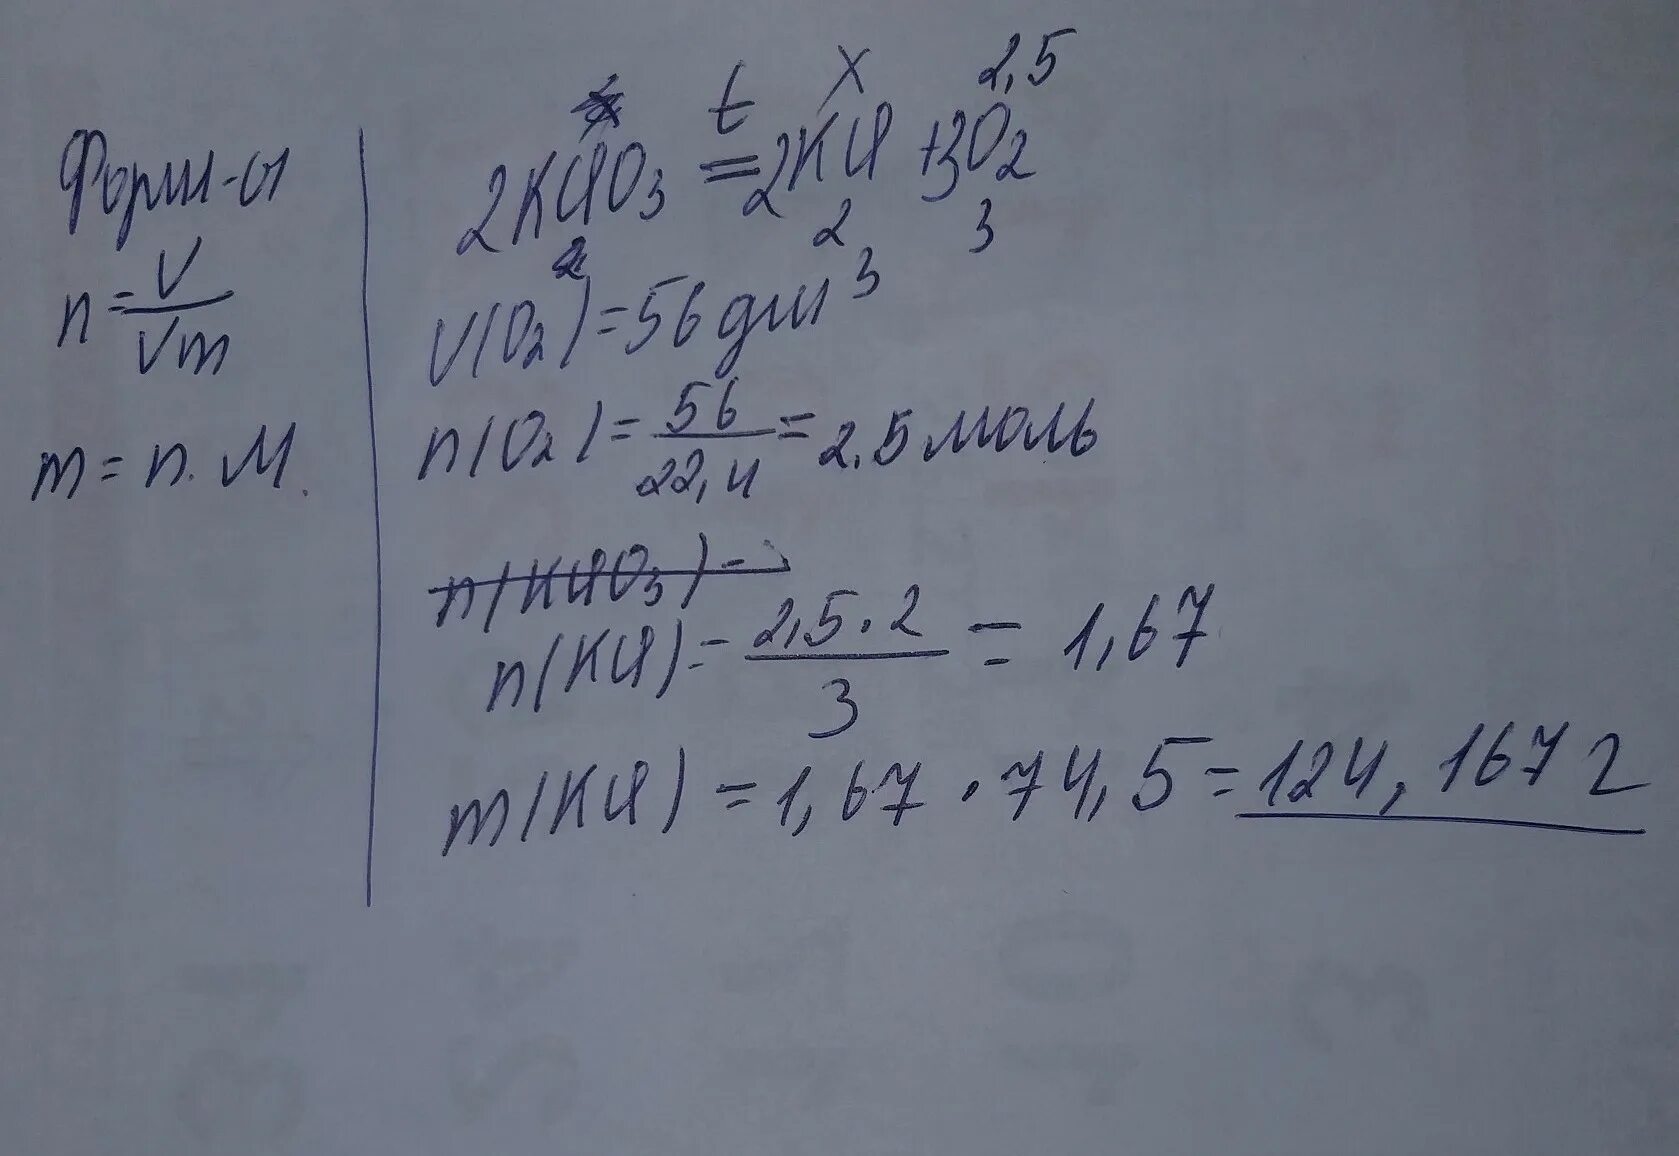 Форм-ы
n = V / Vm
m = n · M
x 2,5
2KClO₃ =ᵗ 2KCl + 3O₂
2 2 3
V(O₂) = 56 дм³
n(O₂) = 56 / 22,4 = 2.5 моль
n(KClO₃) =
n(KCl) = 2,5 · 2 / 3 = 1,67
m(KCl) = 1,67 · 74,5 = 124,167 г